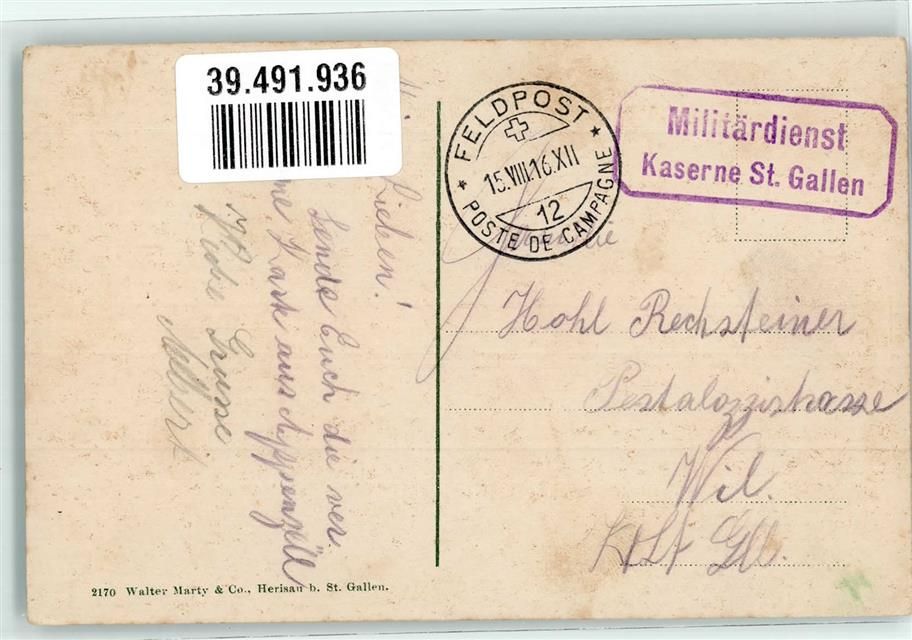 39.491.936
FELDPOST
15.VIII.16.XII
12
POSTE DE CAMPAGNE
Militärdienst
Kaserne St. Gallen
Lieben!
Sende Euch die ver.
Kart aus Appenzell
Liebe Grüsse
Albert
Familie
Hohl Rechsteiner
Pestalozzistrasse
Wil.
Kt St Gll.
2170 Walter Marty & Co., Herisau b. St. Gallen.